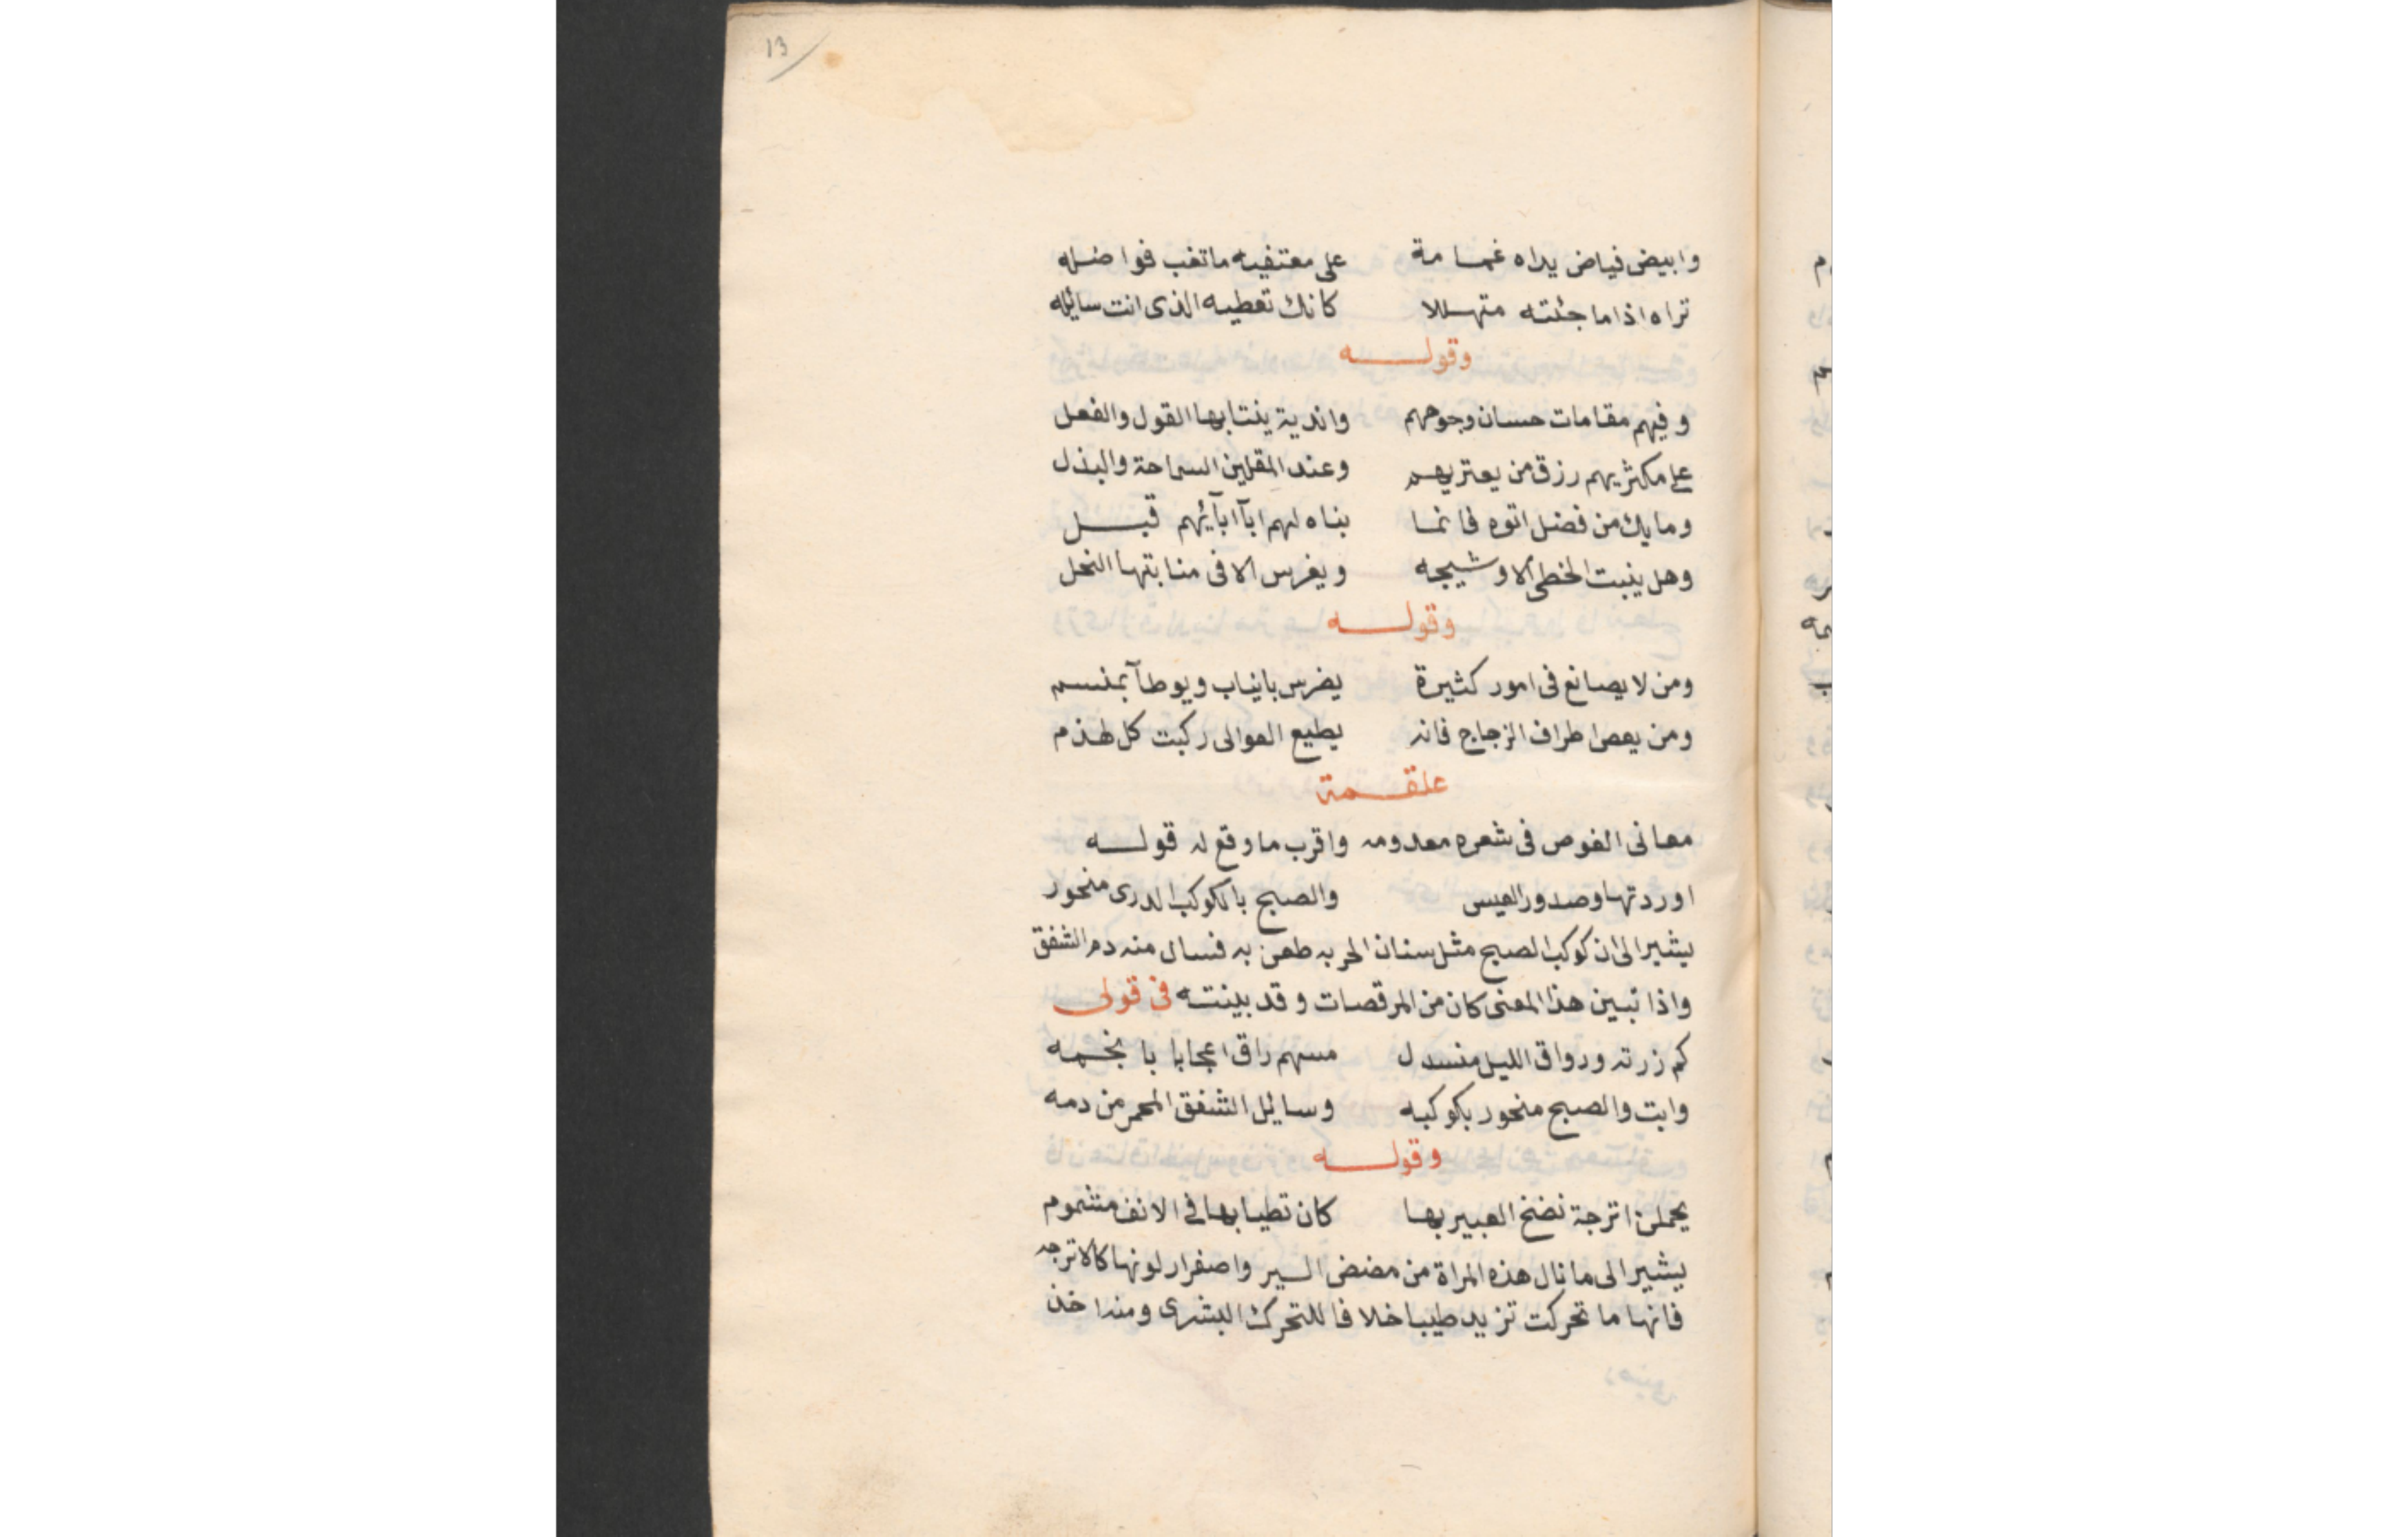 13
وابيض فياض يداه غمامة على معتفيه ماتغب فواضله
تراه اذاما جئته متهللا كانك تعطيه الذى انت سايله
وقوله
وفيهم مقامات حسان وجوههم واندية ينتابها القول والفعل
على مكثريهم رزق من يعتريهم وعند المقلين السماحة والبذل
ومايك من فضل اتوه فانما بناه لهم اباآ ابآئهم قبل
وهل ينبت الخطى الا وشيجه ويغرس الا فى منابتها النخل
وقوله
ومن لا يصانع فى امور كثيرة يضرس بانياب ويوطآ بمنسم
ومن يعص اطراف الزجاج فانه يطيع العوالى ركبت كل لهذم
علقمة
معانى الغوص فى شعره معدومه واقرب ما وقع له قوله
اوردتها وصدور العيس والصبح بالكوكب الدرى منحور
يشير الى ان كوكب الصبح مثل سنان الحربه طعن به فسال منه دم الشفق
واذا تبين هذا المعنى كان من المرقصات وقد بينته فى قولى
كم زرته ورواق الليل منسدل مسهم راق اعجابا بانجمه
وابت والصبح منحور بكوكبه وسايل الشفق المحمر من دمه
وقوله
يحملن اترجة نضخ العبير بها كان تطيابها فى الانف مشموم
يشير الى ما نال هذه المراة من مضض السير واصفرار لونها كالاترجه
فانها ما تحركت تزيد طيبا خلافا للتحرك البشرى ومنه اخذ